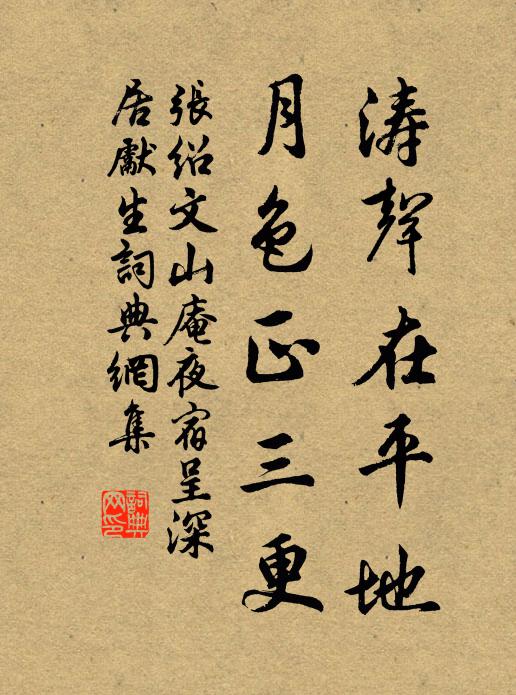 濤聲在平地
月色正三更
張紹文山庵夜宿呈深
居獻生詞典網集
詞典網印